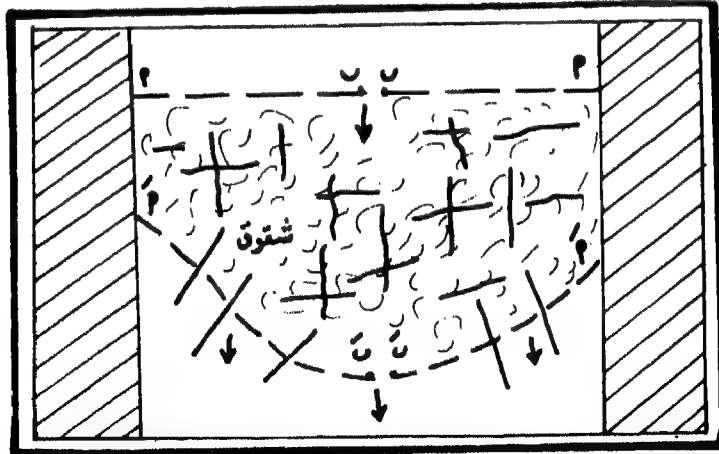 م ب ب م
مَ
شقوق
مَ
بَ بَ